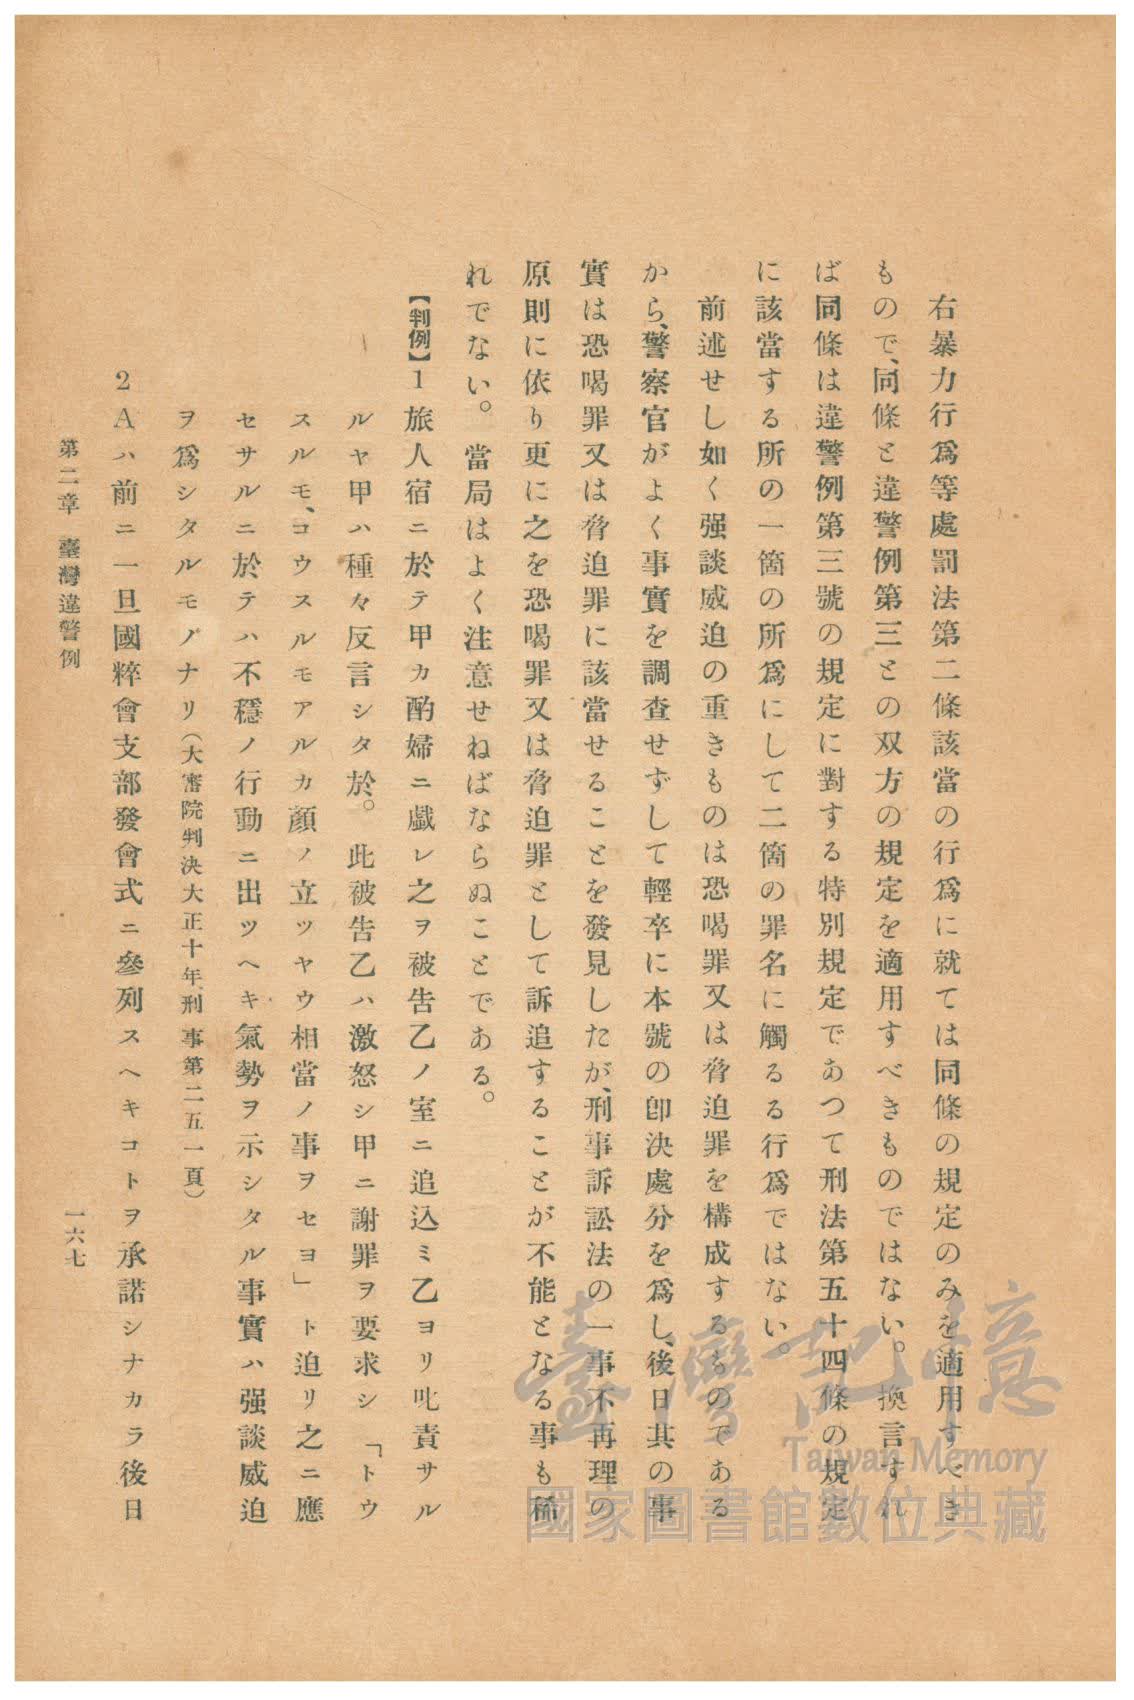 右暴力行爲等處罰法第二條該當の行爲に就ては同條の規定のみを適用すべき
もので、同條と違警例第三との双方の規定を適用すべきものではない。換言すれ
ば同條は違警例第三號の規定に對する特別規定であつて刑法第五十四條の規定
に該當する所の一箇の所爲にして二箇の罪名に觸るる行爲ではない。
前述せし如く强談威迫の重きものは恐喝罪又は脅迫罪を構成するものである
から、警察官がよく事實を調查せずして輕卒に本號の卽決處分を爲し、後日其の事
實は恐喝罪又は脅迫罪に該當せることを發見したが、刑事訴訟法の一事不再理の
原則に依り更に之を恐喝罪又は脅迫罪として訴追することが不能となる事も稀
れでない。當局はよく注意せねばならぬことである。
【判例】1旅人宿ニ於テ甲カ酌婦ニ戲レ之ヲ被吿乙ノ室ニ追込ミ乙ヨリ叱責サル
ルヤ甲ハ種々反言シタ於。此被吿乙ハ激怒シ甲ニ謝罪ヲ要求シ「トウ
スルモ、コウスルモアルカ顏ノ立ツヤウ相當ノ事ヲセヨ」ト迫リ之ニ應
セサルニ於テハ不穩ノ行動ニ出ツヘキ氣勢ヲ示シタル事實ハ强談威迫
ヲ爲シタルモノナリ（大審院判決大正十年、刑事第二五一頁）
2Aハ前ニ一旦國粹會支部發會式ニ參列スヘキコトヲ承諾シナカラ後日
第二章 臺灣違警例
一六七
臺灣記憶
Taiwan Memory
國家圖書館數位典藏